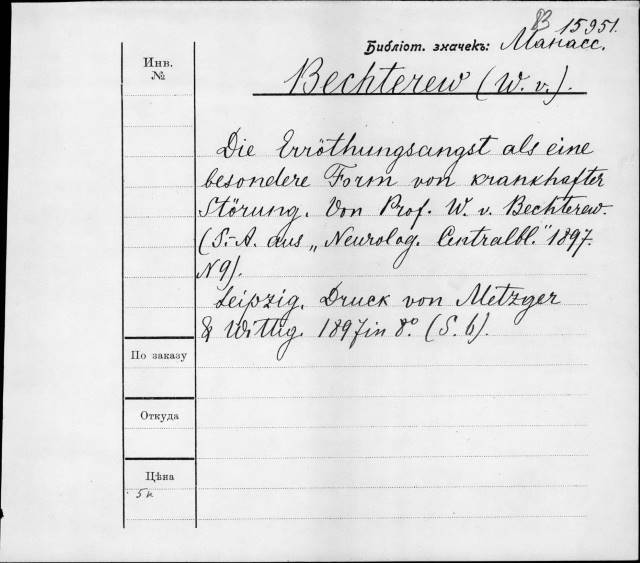 83 15951.
Библіот. значекъ: Манасс.
Инв.
№
Bechterew (W. v.).
Die Erröthungsangst als eine
besondere Form von krankhafter
Störung. Von Prof. W. v. Bechterew.
(S.-A. aus „Neurolog. Centralbl." 1897.
N 9).
Leipzig. Druck von Metzger
& Wittig. 1897 in 8º. (S. 6).
По заказу
Откуда
Цѣна
5 к